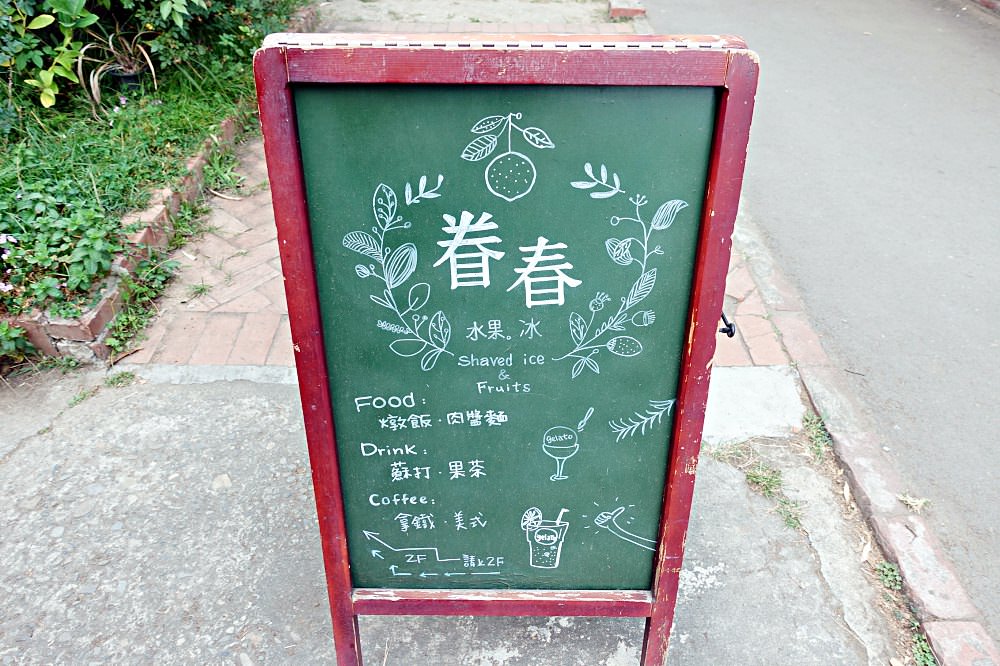 眷春
水果。冰
Shaved ice
&
Fruits
Food:
燉飯·肉醬麵
Drink:
蘇打·果茶
Coffee:
拿鐵·美式
2F
請上2F
gelato
gelato